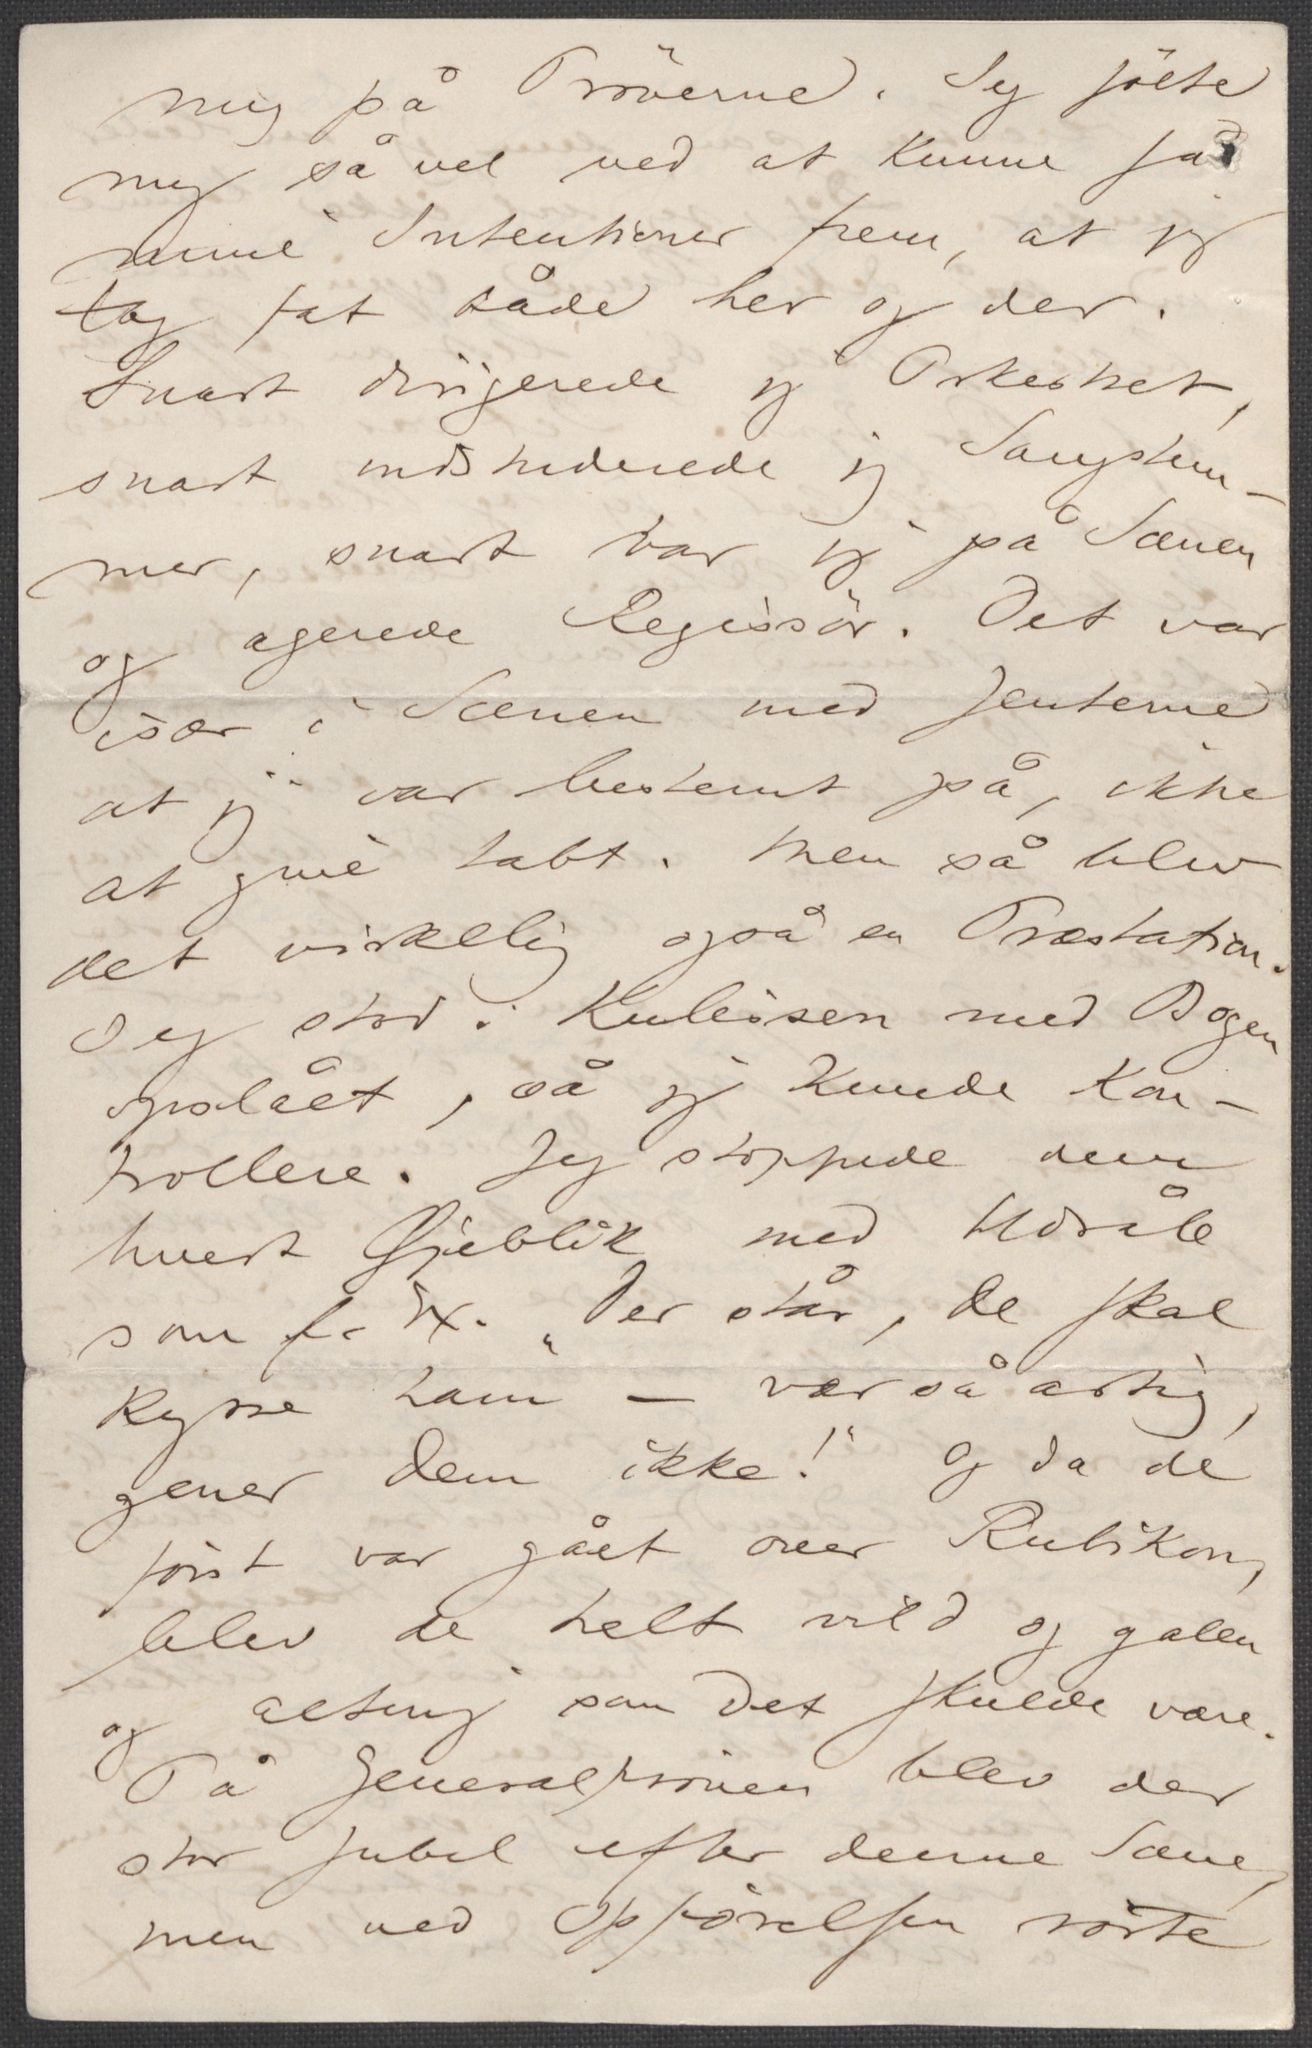 mig på Pröverne. Jeg fölte
mig så vel ved at kunne få
mine Intentioner frem, at jeg
tog fat både her og der.
Snart dirigerede jeg Orkestret,
snart indstuderede jeg Sangstem-
mer, snart var jeg på Scenen
og agerede Regissör. Det var
især i Scenen med Jenterne
at jeg var bestemt på, ikke
at give tabt. Men så blev
det virkelig også en Præstation.
Jeg stod i Kulissen med Bogen
opslået, så jeg kunde kon-
trollere. Jeg stoppede dem
hvert Øjeblik med Udråb
som f. Ex. "Der står, de skal
kysse ham – vær så artig,
gener Dem ikke!" Og da de
först var gået over Rubikon,
blev de helt vild og galen
og alting som det skulde være.
På Generalpröven blev der
stor Jubel efter denne Scene,
men ved Opförelsen rörte